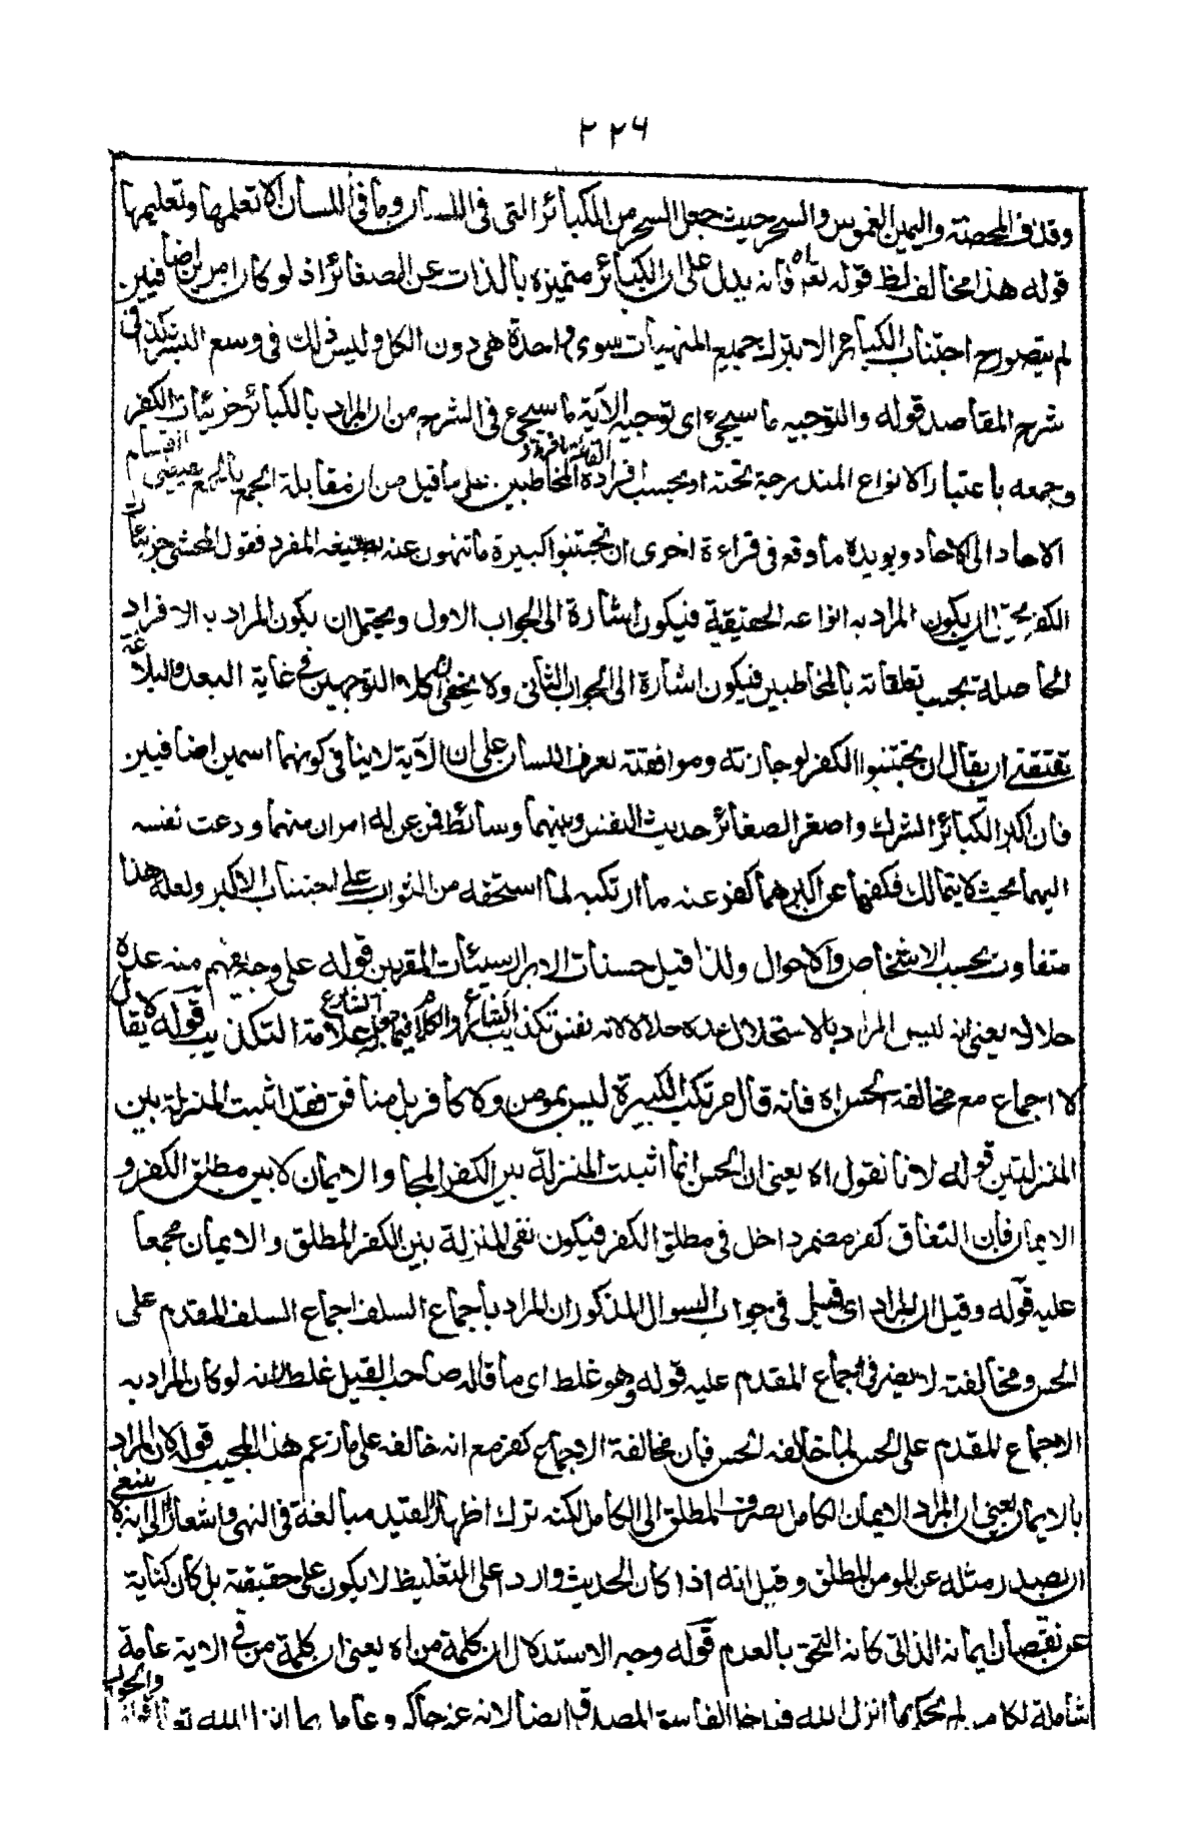 ٢٢٦
وقذف المحصنة واليمين الغموس والسحر حيث جعل السحر من الكبائر التى فى اللسان وما فى اللسان الا تعلمها وتعليمها
قوله هذا مخالف لظ قوله تعا اه فانه يدل على ان الكبائر متميزة بالذات عن الصغائر اذ لو كان امرين اضافيين
لم يتصور ح اجتناب الكبائر الا بترك جميع المنهيات سوى واحدة هى دون الكل وليس ذلك فى وسع البشر كذا فى
شرح المقاصد قوله والتوجيه ما سيجىء اى توجيه الآية ما سيجئ فى الشرح من ان المراد بالكبائر جزئيات الكفر
وجمعه باعتبار الانواع المندرجة تحته او بحسب افراده القائمة بافراد المخاطبين على ما قيل من ان مقابلة الجمع بالجمع يقتضى انقسام
الاحاد الى الاحاد ويويده ما وقع فى قراءة اخرى ان تجتنبوا كبيرة ما تنهون عنه بصيغة المفرد فقول المحشى جزئيات
الكفر يحتمل ان يكون المراد به انواعه الحقيقية فيكون اشارة الى الجواب الاول ويحتمل ان يكون المراد به الافراد
الحاصلة بحسب تعلقاته بالمخاطبين فيكون اشارة الى الجواب الثانى ولا يخفى ان كلا التوجيهين فى غاية البعد والبلاغة
تقتضى ان يقال ان تجتنبوا الكفر لوجازته وموافقته لعرف اللسان على ان الآية لا ينافى كونهما اسمين اضافيين
فان اكبر الكبائر الشرك واصغر الصغائر حديث النفس وبينهما وسائط فمن عن له امران منهما ودعت نفسه
اليهما بحيث لا يتمالك فكفها عن اكبرهما كفر عنه ما ارتكبه لما استحقه من الثواب على اجتناب الاكبر ولعل هذا
متفاوت بحسب الاشخاص والاحوال ولذا قيل حسنات الابرار سيئات المقربين قوله على وجه يفهم منه عده
حلالا يعنى انه ليس المراد بالاستحلال عده حلالا لانه نفس تكذيب الشارع والكلام فيما جعله الشارع علامة التكذيب قوله لا يقال
لا اجماع مع مخالفة الحسن اه فانه قال مرتكب الكبيرة ليس بمومن ولا كافر بل منافق فقد اثبت المنزلة بين
المنزلتين قوله لانا نقول اه يعنى ان الحسن انما اثبت المنزلة بين الكفر المجاهر والايمان لا بين مطلق الكفر و
الايمان فان النفاق كفر مضمر داخل فى مطلق الكفر فيكون نفى المنزلة بين الكفر المطلق والايمان مجمعا
عليه قوله وقيل ان المراد اى قيل فى جواب السوال المذكور ان المراد باجماع السلف اجماع السلف المقدم على
الحسن ومخالفته لا يضر فى اجماع المقدم عليه قوله وهو غلط اى ما قاله صاحب القيل غلط لانه لو كان المراد به
الاجماع المقدم على الحسن لما خالفه الحسن فان مخالفة الاجماع كفر مع انه خالفه على ما زعم هذا المجيب قوله لان المراد
بالايمان يعنى ان المراد الايمان الكامل بصرف المطلق الى الكامل لكنه ترك اظهار القيد مبالغة فى النهى واشعارا الى انه لا ينبغى
ان يصدر مثله عن المومن المطلق وقيل انه اذا كان الحديث واردا على التغليظ لا يكون على حقيقته بل كان كناية
عن نقصان ايمانه الذاتى كانه التحق بالعدم قوله وجه الاستدلال ان كلمة من اه يعنى ان كلمة من فى الاية عامة
شاملة لكل من لم يحكم بما انزل الله فيدخل الفاسق المصدق ايضا لانه غير حاكم وعامل بما انزل الله تع والجواب